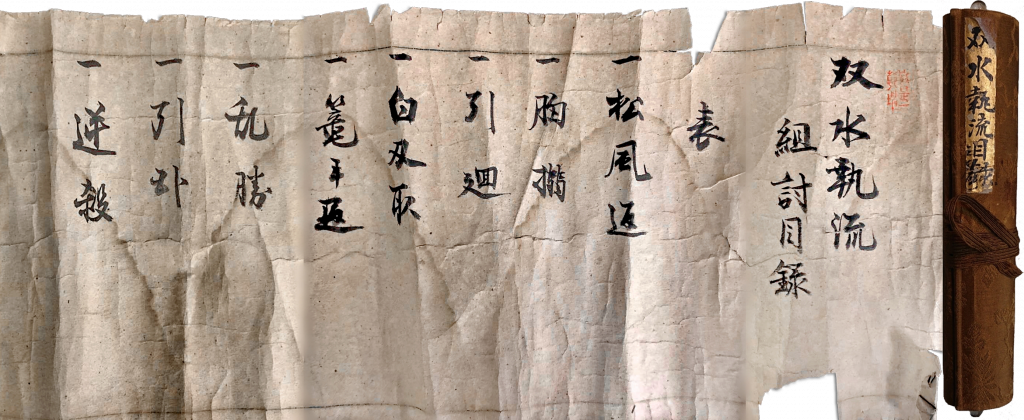 双水執流
組討目録
表
一松風返
一胸搦
一引廻
一白刄取
一篭手返
一乱勝
一引卦
一逆殺
双水執流目録